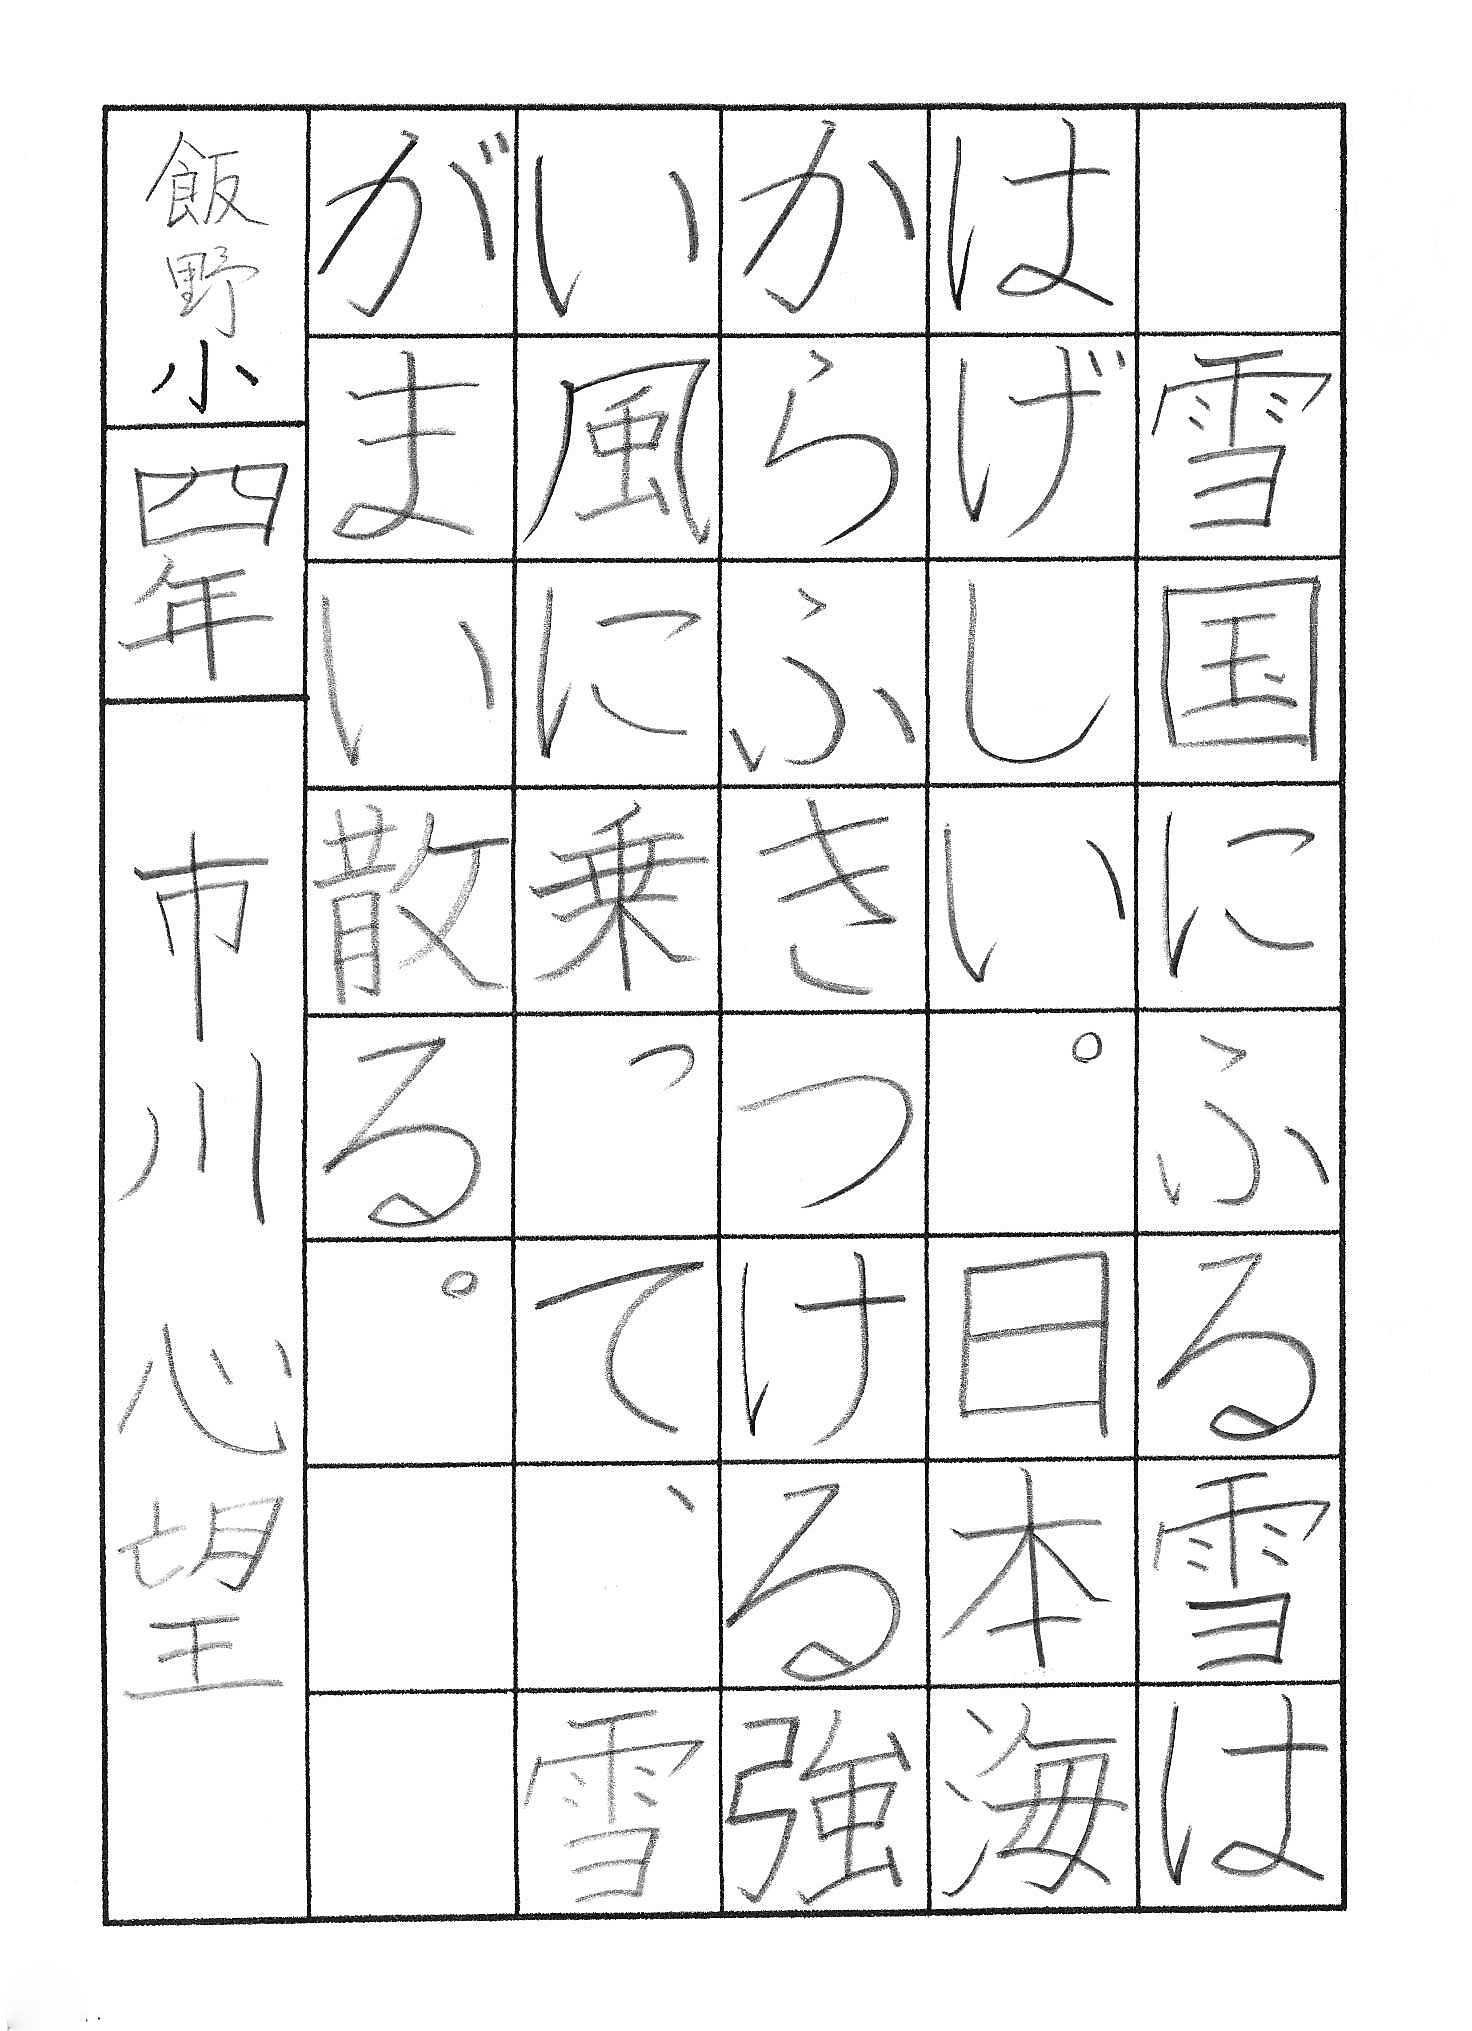 雪国にふる雪は
はげしい。日本海
からふきつける強
い風に乗って、雪
がまい散る。
飯野小 四年 市川心望